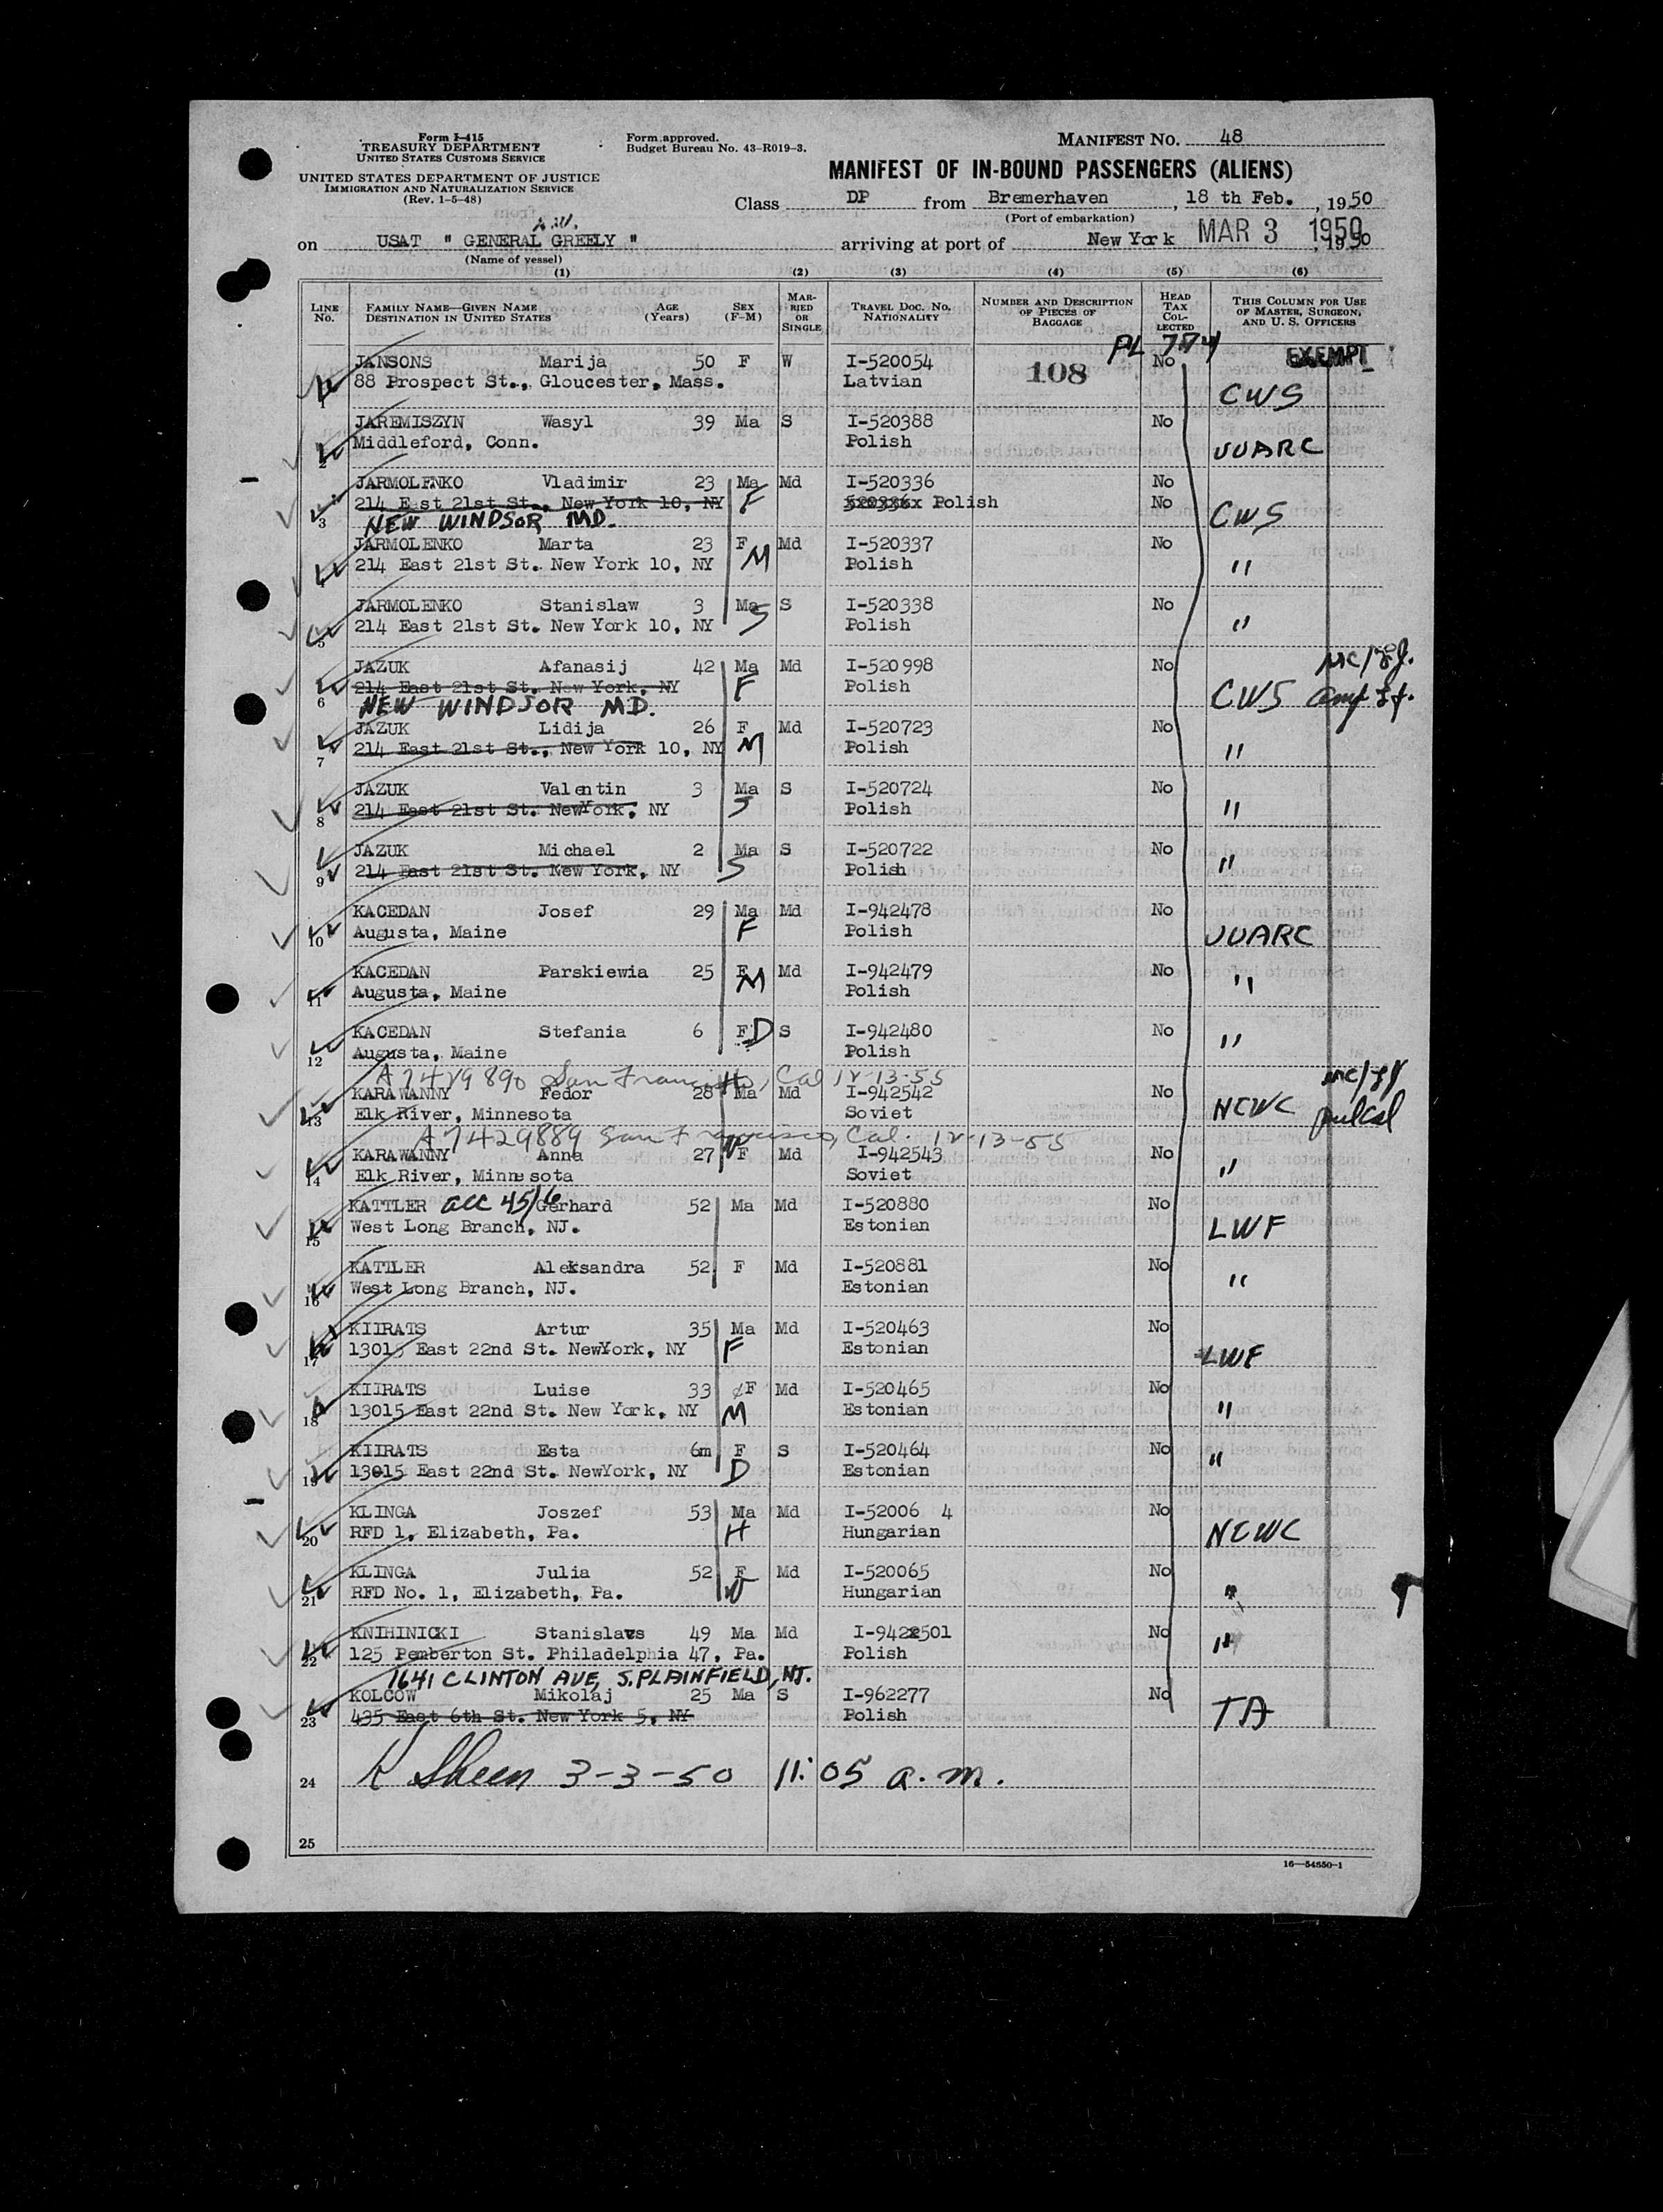 Form I-415
TREASURY DEPARTMENT
UNITED STATES CUSTOMS SERVICE
UNITED STATES DEPARTMENT OF JUSTICE
IMMIGRATION AND NATURALIZATION SERVICE
(Rev. 1-5-48)
Form approved.
Budget Bureau No. 43-R019-3.
MANIFEST NO. 48
MANIFEST OF IN-BOUND PASSENGERS (ALIENS)
Class DP from Bremerhaven, 18 th Feb., 1950
(Port of embarkation)
A.W.
on USAT " GENERAL GREELY " arriving at port of New York MAR 3 1950, 1950
(Name of vessel)
(1) (2) (3) (4) (5) (6)
LINE No. FAMILY NAME—GIVEN NAME DESTINATION IN UNITED STATES AGE (Years) SEX (F-M) MARRIED OR SINGLE TRAVEL DOC. NO. NATIONALITY NUMBER AND DESCRIPTION OF PIECES OF BAGGAGE HEAD TAX COLLECTED THIS COLUMN FOR USE OF MASTER, SURGEON, AND U. S. OFFICERS
PL 774
1 JANSONS Marija 50 F W I-520054 108 No EXEMPT
88 Prospect St., Gloucester, Mass. Latvian CWS
2 JAREMISZYN Wasyl 39 Ma S I-520388 No
Middleford, Conn. Polish UUARC
3 JARMOLENKO Vladimir 23 Ma Md I-520336 No
214 East 21st St., New York 10, NY F 520336x Polish No CWS
NEW WINDSOR MD.
4 JARMOLENKO Marta 23 F Md I-520337 No
214 East 21st St. New York 10, NY M Polish "
5 JARMOLENKO Stanislaw 3 Ma S I-520338 No
214 East 21st St. New York 10, NY S Polish "
6 JAZUK Afanasij 42 Ma Md I-520998 No
214 East 21st St. New York, NY F Polish CWS
NEW WINDSOR MD.
7 JAZUK Lidija 26 F Md I-520723 No
214 East 21st St., New York 10, NY M Polish "
8 JAZUK Valentin 3 Ma S I-520724 No
214 East 21st St. NewYork, NY S Polish "
9 JAZUK Michael 2 Ma S I-520722 No
214 East 21st St. New York, NY S Polish "
10 KACEDAN Josef 29 Ma Md I-942478 No
Augusta, Maine F Polish UUARC
11 KACEDAN Parskiewia 25 F Md I-942479 No
Augusta, Maine M Polish "
12 KACEDAN Stefania 6 F D S I-942480 No
Augusta, Maine Polish "
A7429890 San Francisco, Cal 12-13-55
13 KARAWANNY Fedor 28 H Ma Md I-942542 No
Elk River, Minnesota Soviet NCWC
A7429889 San Francisco, Cal. 12-13-55
14 KARAWANNY Anna 27 W F Md I-942543 No
Elk River, Minnesota Soviet "
15 KATTLER acc 45/6 Gerhard 52 Ma Md I-520880 No
West Long Branch, NJ. Estonian LWF
16 KATTLER Aleksandra 52 F Md I-520881 No
West Long Branch, NJ. Estonian "
17 KIIRATS Artur 35 Ma Md I-520463 No
13015 East 22nd St. NewYork, NY F Estonian LWF
18 KIIRATS Luise 33 F Md I-520465 No
13015 East 22nd St. New York, NY M Estonian "
19 KIIRATS Esta 6m F S I-520464 No
13015 East 22nd St. NewYork, NY D Estonian "
20 KLINGA Joszef 53 Ma Md I-52006 4 No
RFD 1, Elizabeth, Pa. H Hungarian NCWC
21 KLINGA Julia 52 F Md I-520065 No
RFD No. 1, Elizabeth, Pa. W Hungarian "
22 KNIHINICKI Stanislaws 49 Ma Md I-942501 No
125 Pemberton St. Philadelphia 47, Pa. Polish "
1641 CLINTON AVE, S. PLAINFIELD, NJ.
23 KOLCOW Mikolaj 25 Ma S I-962277 No
435 East 6th St. New York 5, NY Polish TA
24 K Sheen 3-3-50 11:05 a.m.
25
16—54550-1